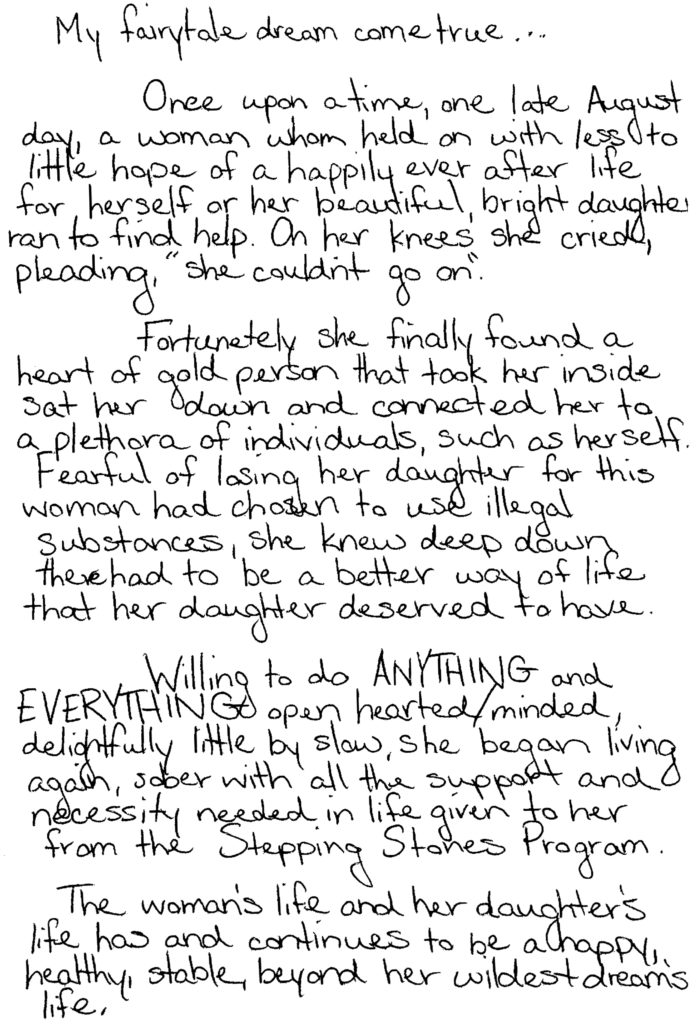 My fairytale dream come true...
Once upon a time, one late August
day, a woman whom held on with less to
little hope of a happily ever after life
for herself or her beautiful, bright daughter
ran to find help. On her knees she cried,
pleading, "she couldn't go on".
Fortunetely she finally found a
heart of gold person that took her inside
sat her down and connected her to
a plethora of individuals, such as herself.
Fearful of losing her daughter for this
woman had chosen to use illegal
substances, she knew deep down
there had to be a better way of life
that her daughter deserved to have.
Willing to do ANYTHING and
EVERYTHING open hearted/minded,
delightfully little by slow, she began living
again, sober with all the support and
necessity needed in life given to her
from the Stepping Stones Program.
The woman's life and her daughter's
life has and continues to be a happy,
healthy, stable, beyond her wildest dreams
life.